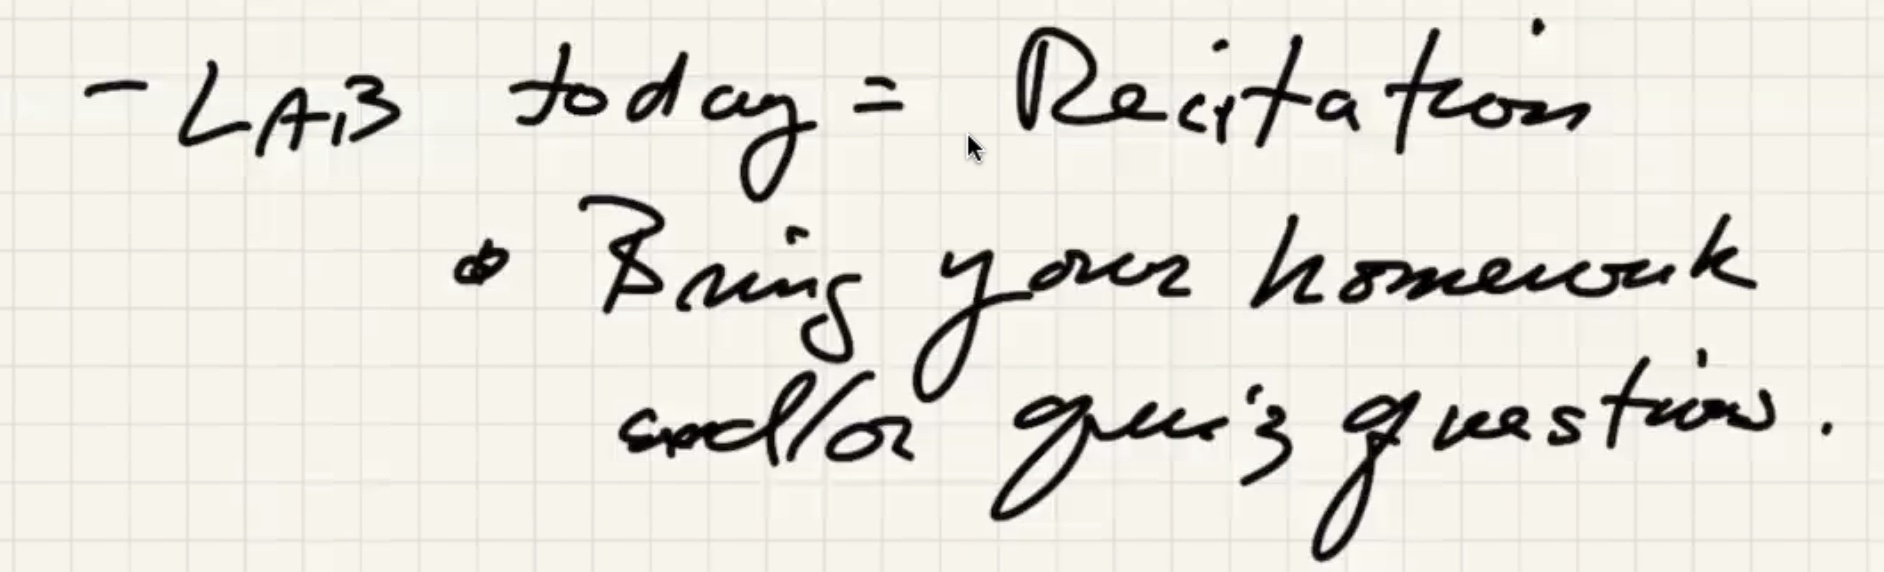 - LAB today = Recitation
• Bring your homework
and/or quiz questions.